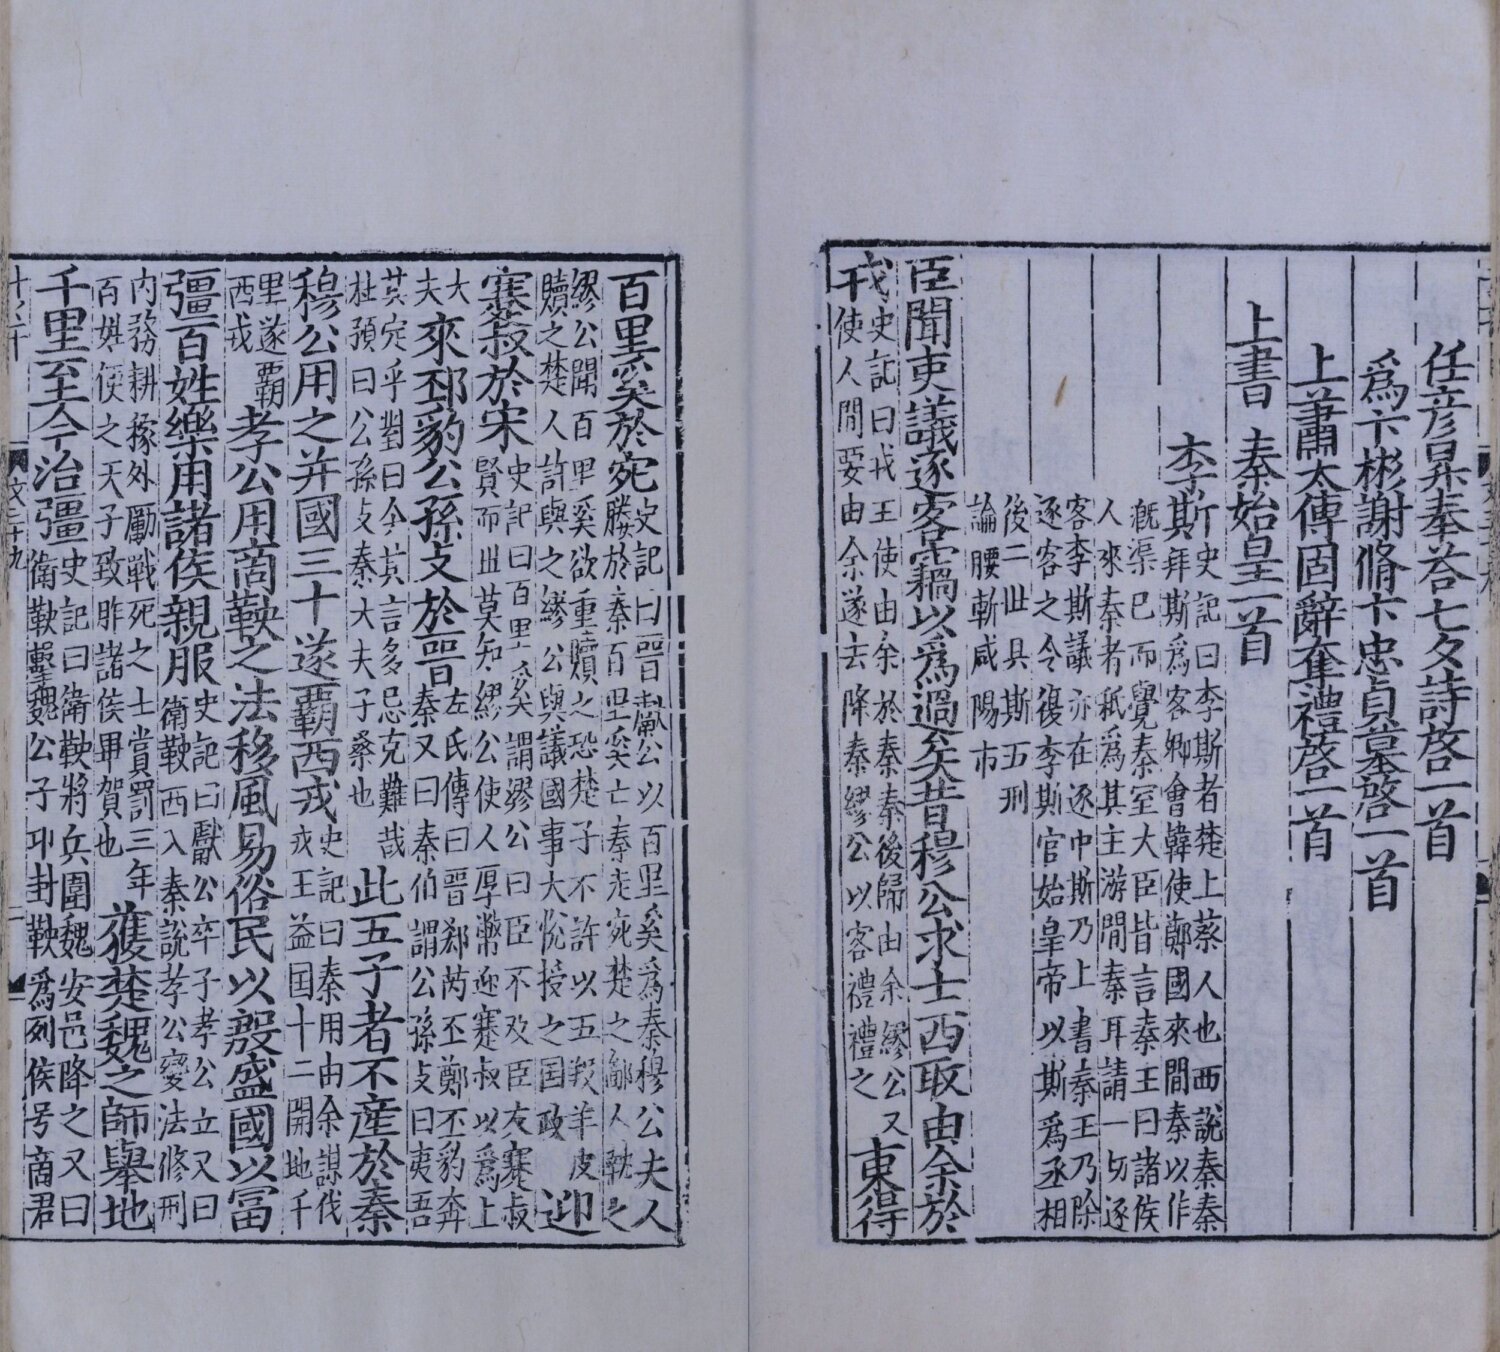 任彥昇奉荅七夕詩啓一首
爲卞彬謝脩卞忠貞墓啓一首
上蕭太傅固辭奪禮啓一首
上書秦始皇一首
李斯史記曰李斯者楚上蔡人也西說秦秦
拜斯爲客卿會韓使鄭國來間秦以作
漑渠已而覺秦室大臣皆言秦王曰諸侯
人來秦者秖爲其主游間秦耳請一切逐
客李斯議亦在逐中斯乃上書秦王乃除
逐客之令復李斯官始皇帝以斯爲丞相
後二世具斯五刑
論腰斬咸陽市
臣聞吏議逐客竊以爲過矣昔穆公求士西取由余於
戎史記曰戎王使由余於秦秦後歸由余繆公又
使人間要由余遂去降秦繆公以客禮禮之東得
百里奚於宛史記曰晉獻公以百里奚爲秦穆公夫人
媵於秦百里奚亡秦走宛楚之鄙人執之
繆公聞百里奚欲重贖之恐楚子不許以五羖羊皮
贖之楚人許與之繆公與議國事大悅授之国政迎
蹇叔於宋史記曰百里奚謂繆公曰臣不及臣友蹇叔
賢而世莫知繆公使人厚幣迎蹇叔以爲上
大
夫來邳豹公孫支於晉左氏傳曰晉郄芮丕鄭丕豹奔
秦又曰秦伯謂公孫支曰夷吾
其定乎對曰今其言多忌克難哉
杜預曰公孫支秦大夫子桑也此五子者不産於秦
穆公用之并國三十遂霸西戎史記曰秦用由余謀伐
戎王益国十二開地千
里遂霸
西戎孝公用商鞅之法移風易俗民以殷盛國以富
彊百姓樂用諸侯親服史記曰獻公卒子孝公立又曰
衛鞅西入秦說孝公變法修刑
内務耕稼外勵戰死之士賞罰三年
百姓便之天子致胙諸侯畢賀也獲楚魏之師舉地
千里至今治彊史記曰衛鞅將兵圍魏安邑降之又曰
衛鞅擊魏公子卬封鞅爲列侯号商君
文三十九
二